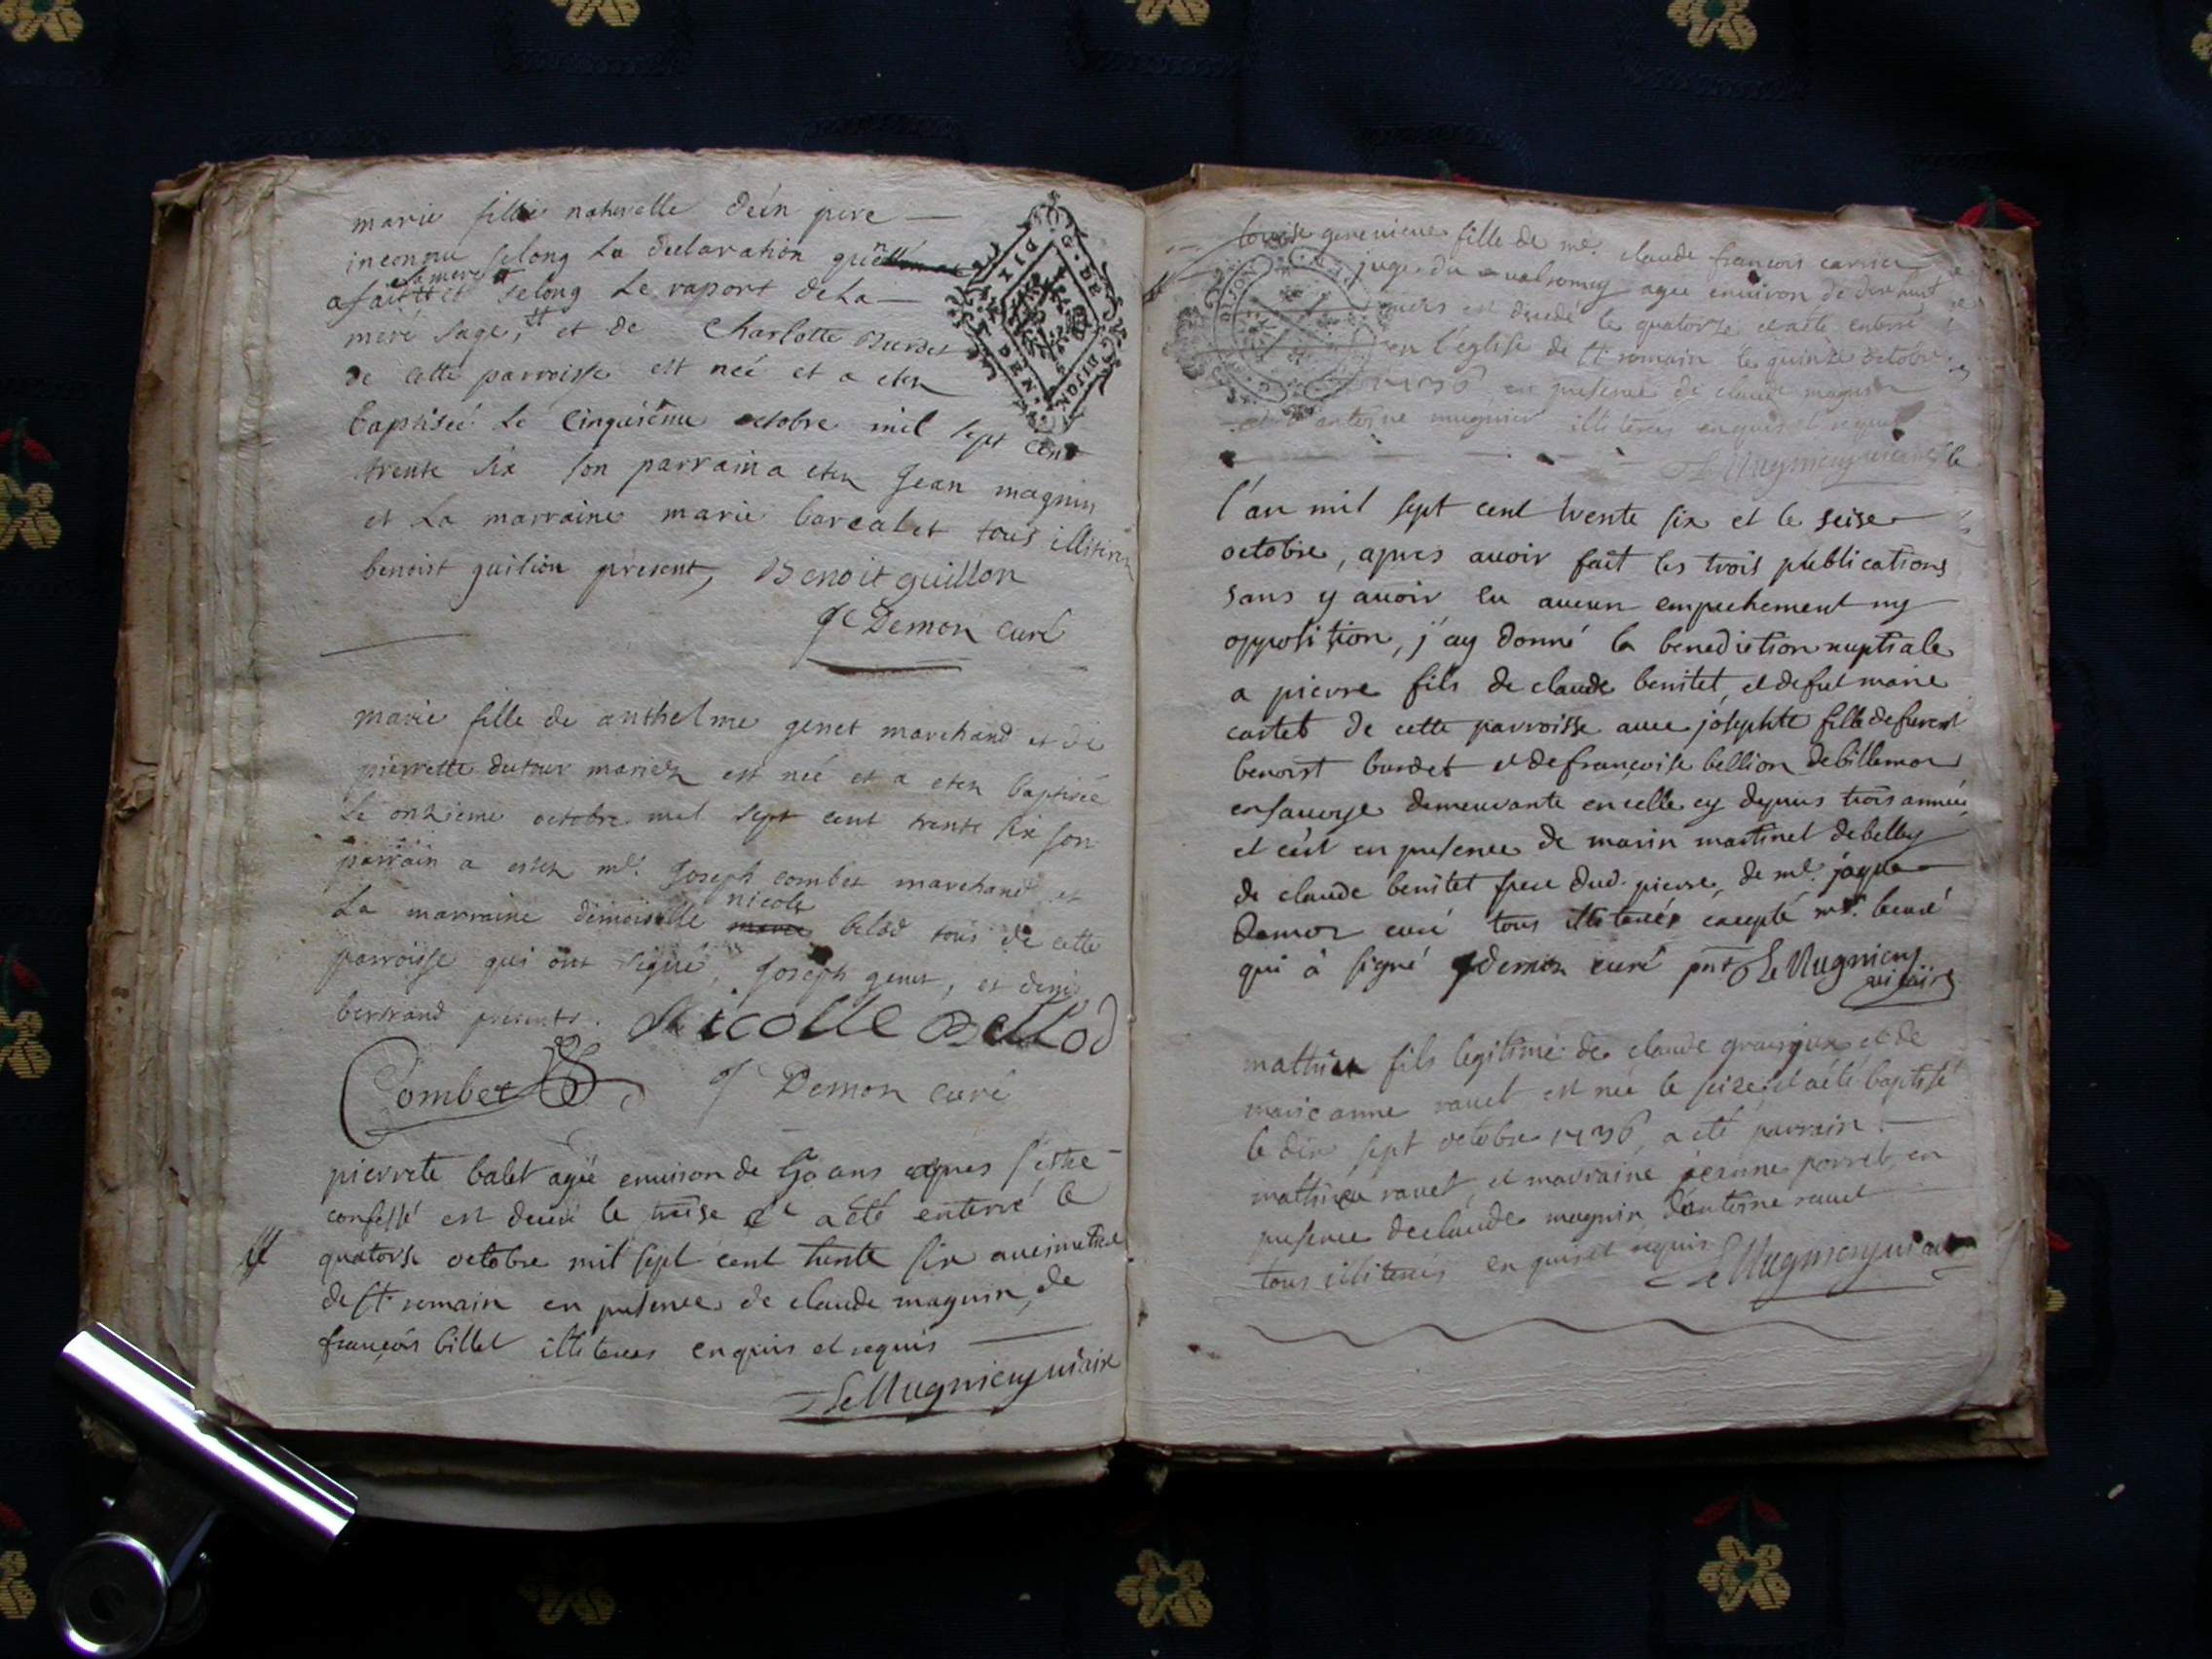 marie fille naturelle d'ün pere
inconnu selong La declaration quen
a fait la mere et selong Le raport de La
mere sage, et de Charlotte Burdet
de cette parroisse est neé et a eter
baptiseé Le Cinquiéme octobre mil sept cent
trente six son parrain a eter Jean magnin
et La marraine marie barcalet tous illiteres
benoist guilion present, Benoit guillon
J Demon curé
marie fille de anthelme genet marchand et de
pierrette dutour mariez est neé et a eter baptiseé
Le onzieme octobre mil sept cent trente six son
parrain a ester mr. Joseph combet marchand et
La marraine demoiselle nicole belod tous de cette
parroisse qui ont signé, Joseph genet, et denis
bertrand presents. Nicolle Bellod
Combet J Demon curé
pierrete balet ageé enuiron de 50 ans apres s'estre
confessé est decedé le treise et a été enterré le
quatorse octobre mil sept cent trente six au cimetiere
de st. romain en presence de claude magnin, de
françois billet illiteres enquis et requis
Le Mugnieny uicaire
DIJON
louise geneuieue fille de me. claude francois carrier
juge du valromey ageé enuiron de dix huit
mois est decedé le quatorse et a été enterré
en l'église de st. romain le quinze octobre
1736 en presence de claude magnin
et d'antoine mugnier illiteres enquis et requis
Le Mugnieny uicaire
l'an mil sept cent trente six et le seise
octobre, apres auoir fait les trois publications
sans y auoir eu aucun empechement ny
opposition, j'ay donné la benediction nuptiale
a pierre fils de claude benitet, et de fut marie
cartet de cette parroisse auec josephte fille de furent
benoist burdet et de françoise bellion de billemon
en sauoye demeurante en celle cy depuis trois années
et c'est en presence de marin martinet de belley
de claude benitet frere dud. pierre, de mr. jaque
Demon curé tous illiterés excepté mr. le curé
qui à signé J demon curé pnt Le Mugnieny
uicaire
mathieu fils legitime de claude grosjean et de
marie anne rauet est né le seize et a été baptisé
le dix sept octobre 1736, a été parrain
mathieu rauet, et marraine jeanne porret, en
presence de claude magnin, d'antoine rauet
tous illiteres enquis et requis Le Mugnieny uicaire